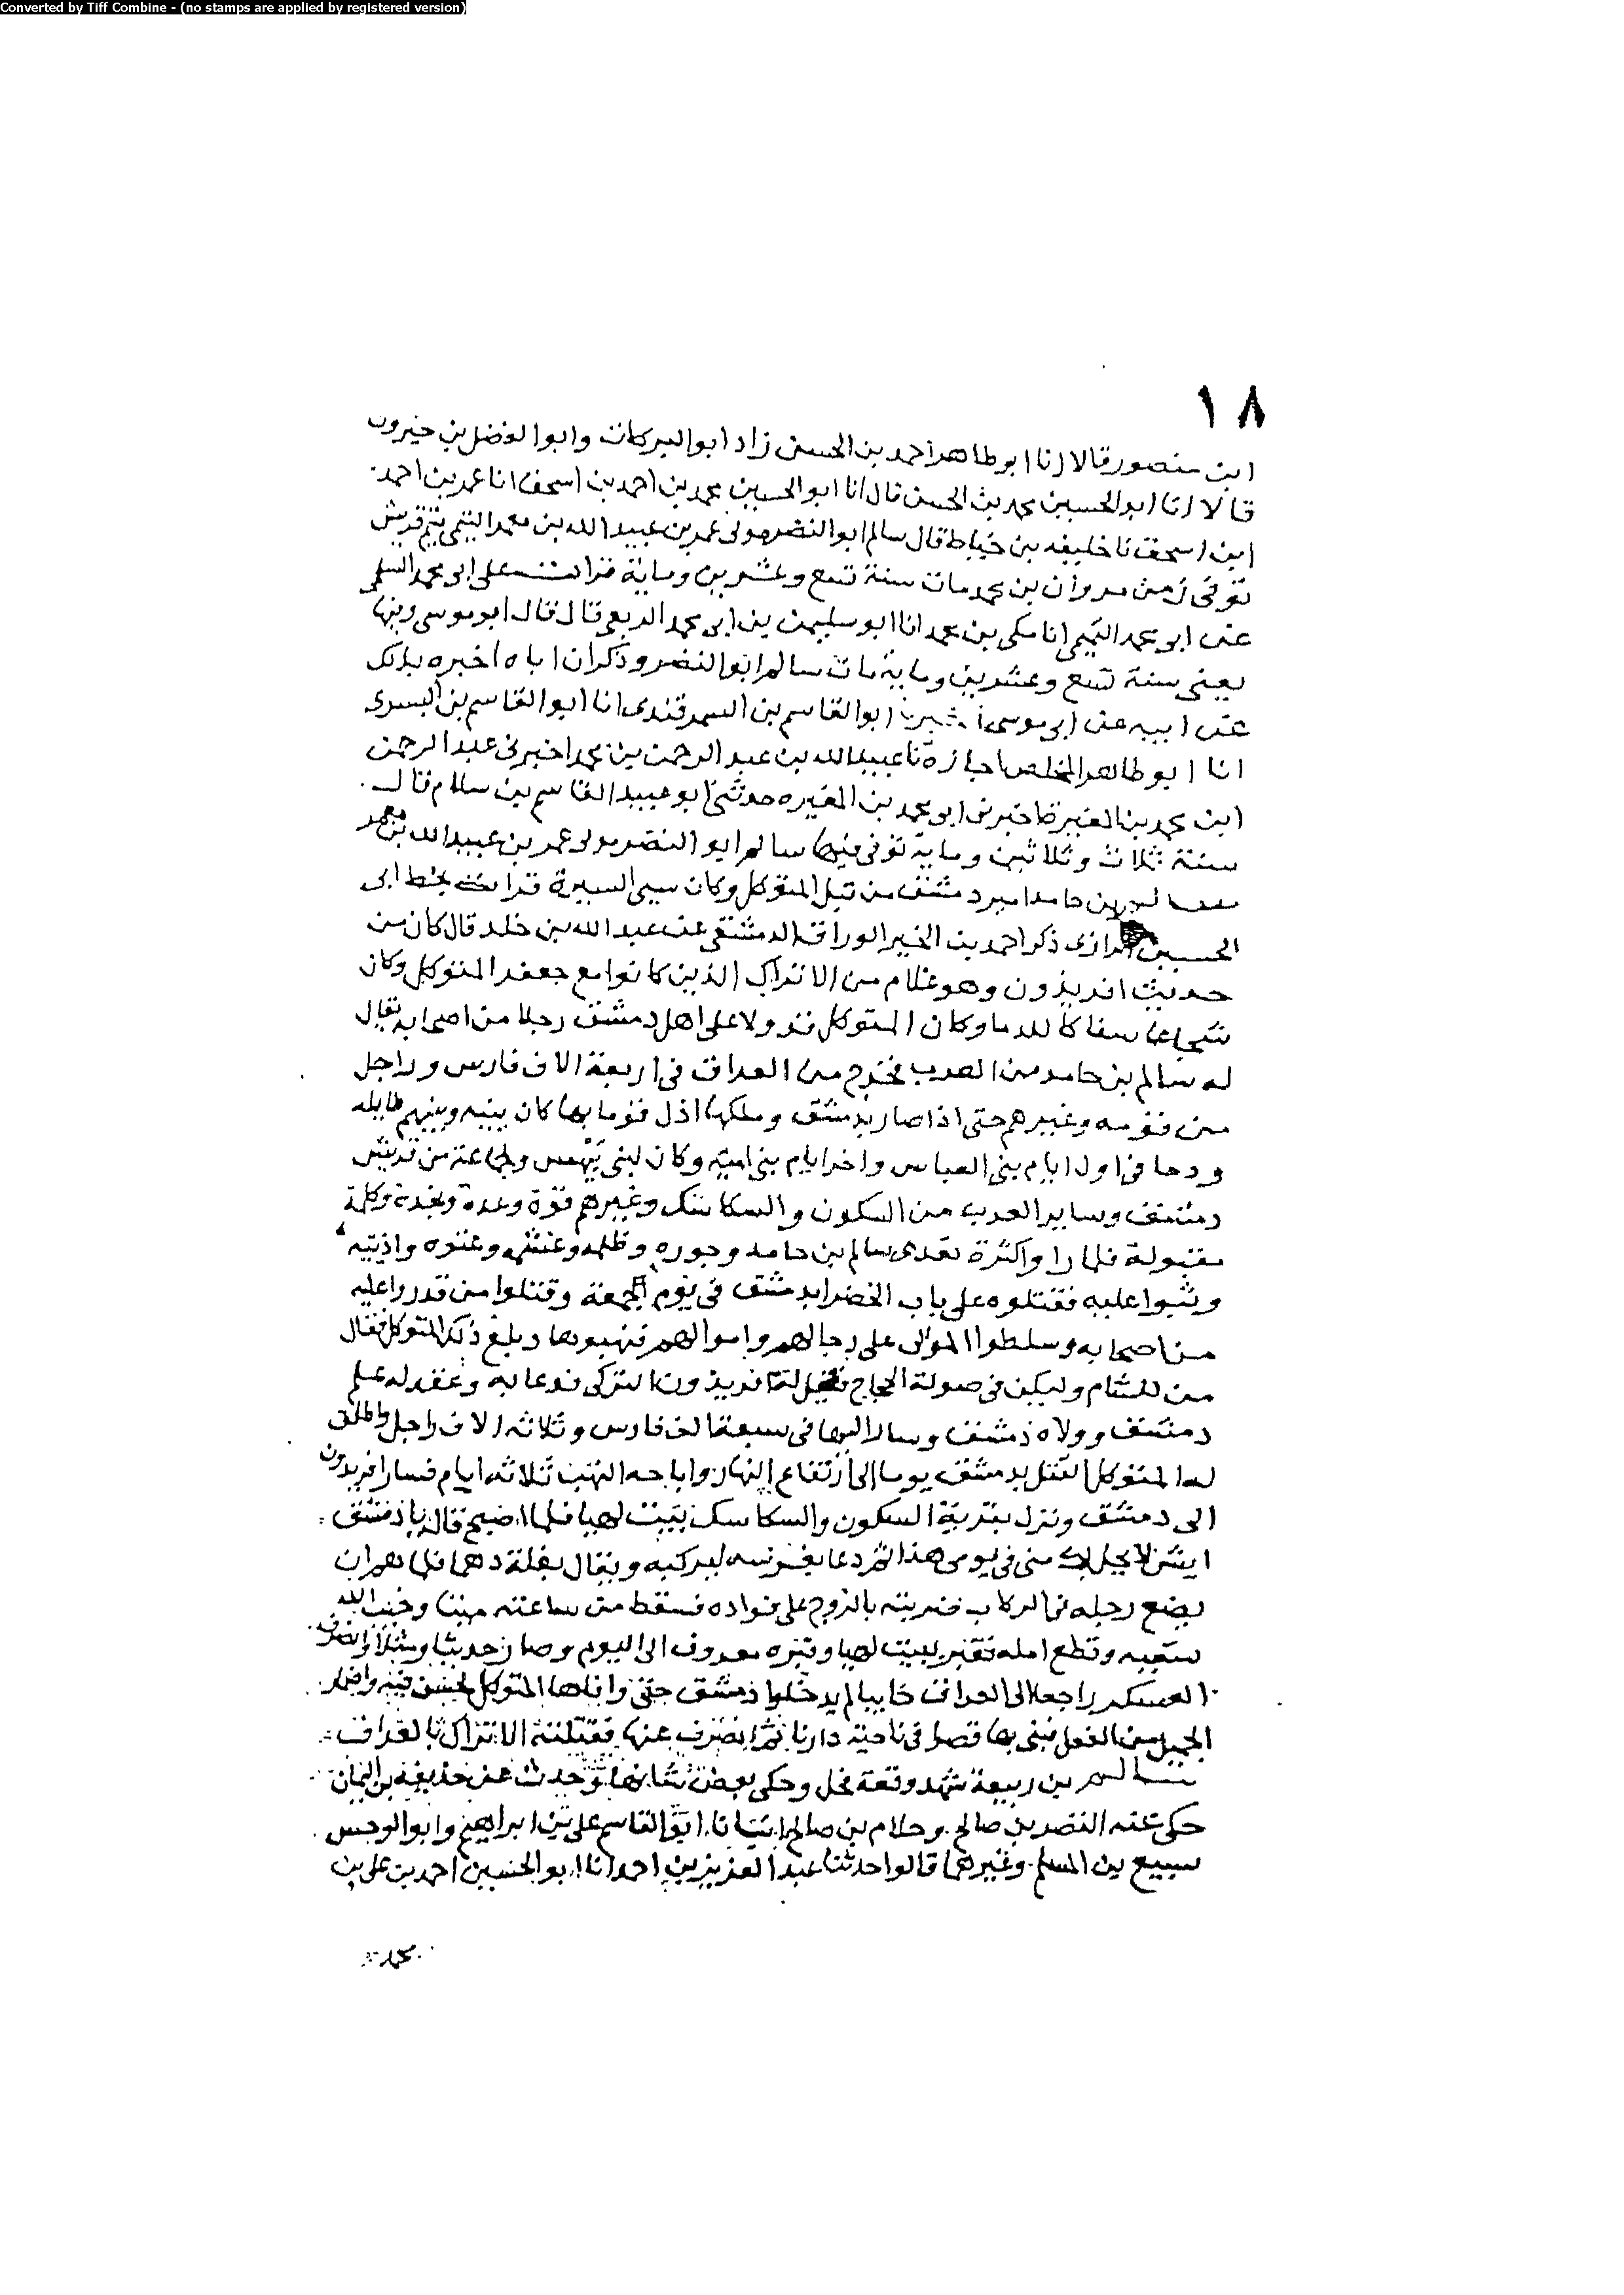 Converted by Tiff Combine - (no stamps are applied by registered version)
١٨
ابن منصور قالا انا ابو طاهر احمد بن الحسن زاد ابو البركات وابو الفضل بن خيرون
قالا انا ابو الحسين محمد بن الحسن قال انا ابو الحسين محمد بن احمد بن اسحق انا عمر بن احمد
ابن اسحق نا خليفه بن خياط قال سالم ابو النضر مولى عمر بن عبيد الله بن معمر التيمي تيم قريش
توفي زمن مروان بن محمد مات سنة تسع وعشرين وماية قرات على ابي محمد السلمي
عن ابي محمد التميمي انا مكي بن محمد انا ابو سليمن بن ابي محمد الربعي قال قال ابو موسى وفيها
يعني سنة تسع وعشرين وماية مات سالم ابو النضر وذكر ان اباه اخبره بذلك
عن ابيه عن ابي موسى اخبرنا ابو القاسم بن السمرقندي انا ابو القاسم بن البسري
انا ابو طاهر المخلص اجازة نا عبيد الله بن عبد الرحمن بن محمد اخبرني عبد الرحمن
ابن محمد بن المغيرة اخبرني ابي محمد بن المغيره حدثني ابو عبيد القاسم بن سلام قال
سنة ثلاث وثلاثين وماية توفي فيها سالم ابو النضر مولى عمر بن عبيد الله بن معمر
سالم بن حامد امير دمشق من قبل المتوكل وكان سيي السيرة قرات بخط ابي
الحسين الرازي ذكر احمد بن الخير الوراق الدمشقي عن عبد الله بن خلد قال كان من
حديث افريذون وهو غلام من الاتراك الذين كانوا مع جعفر المتوكل وكان
شجاعا سفاكا للدما وكان المتوكل قد ولا على اهل دمشق رجلا من اصحابه يقال
له سالم بن حامد من العرب فخرج من العراق في اربعة الاف فارس وراجل
من قومه وغيرهم حتى اذا صار بدمشق وملكها اذل قوما بها كان بينه وبينهم طايله
ودما في اول ايام بني العباس واخر ايام بني امية وكان لبني بيهس ولجماعة من قريش
دمشق وساير العرب من السكون والسكاسك وغيرهم قوة وعدة ونجدة وكلمة
مقبولة فلما راوا كثرة تعدي سالم بن حامد وجوره وظلمه وغشمه وعتوه واذيته
وثبوا عليه فقتلوه على باب الخضرا بدمشق في يوم الجمعة وقتلوا من قدروا عليه
من اصحابه وسلطوا الموالي على رحالهم واموالهم فنهبوها وبلغ ذلك المتوكل فقال
من للشام وليكن في صولة الحجاج افريذون التركي فدعا به وعقد له على
دمشق وولاه دمشق وسار اليها في سبعة الف فارس وثلاثه الاف راجل واطلق
له المتوكل القتل بدمشق يوما الى ارتفاع النهار واباحه النهب ثلاثه ايام فسار افريذون
الى دمشق ونزل بقرية السكون والسكاسك ببيت لهيا فلما اصبح قال يا دمشق
ايش لا يحل بك مني في يومي هذا ثم دعا بفرسه ليركبه ويقال بغلة دهما فلما هم ان
يضع رجله في الركاب ضربته بالزوج على فواده فسقط من ساعته ميتا وخيب الله
سعيه وقطع امله فقبر ببيت لهيا وقبره معروف الى اليوم وصار حديثا ومثلا وانصرف
العسكر راجعا الى العراق خايبا لم يدخلوا دمشق حتى وافاها المتوكل بحسن نيه واضمار
الجميل من الفعل فبنى بها قصرا في ناحية داريا ثم انصرف عنها فقتلته الاتراك بالعراق
سالم بن ربيعة شهد وقعة فحل وحكى بعض شانها وحدث عن حذيفه بن اليمان
حكى عنه النضر بن صالح وحلام بن صالح انبانا ابو القاسم علي بن ابراهيم وابو الوحش
سبيع بن المسلم وغيرهما قالوا حدثنا عبد العزيز بن احمد انا ابو الحسين احمد بن علي بن
محمد